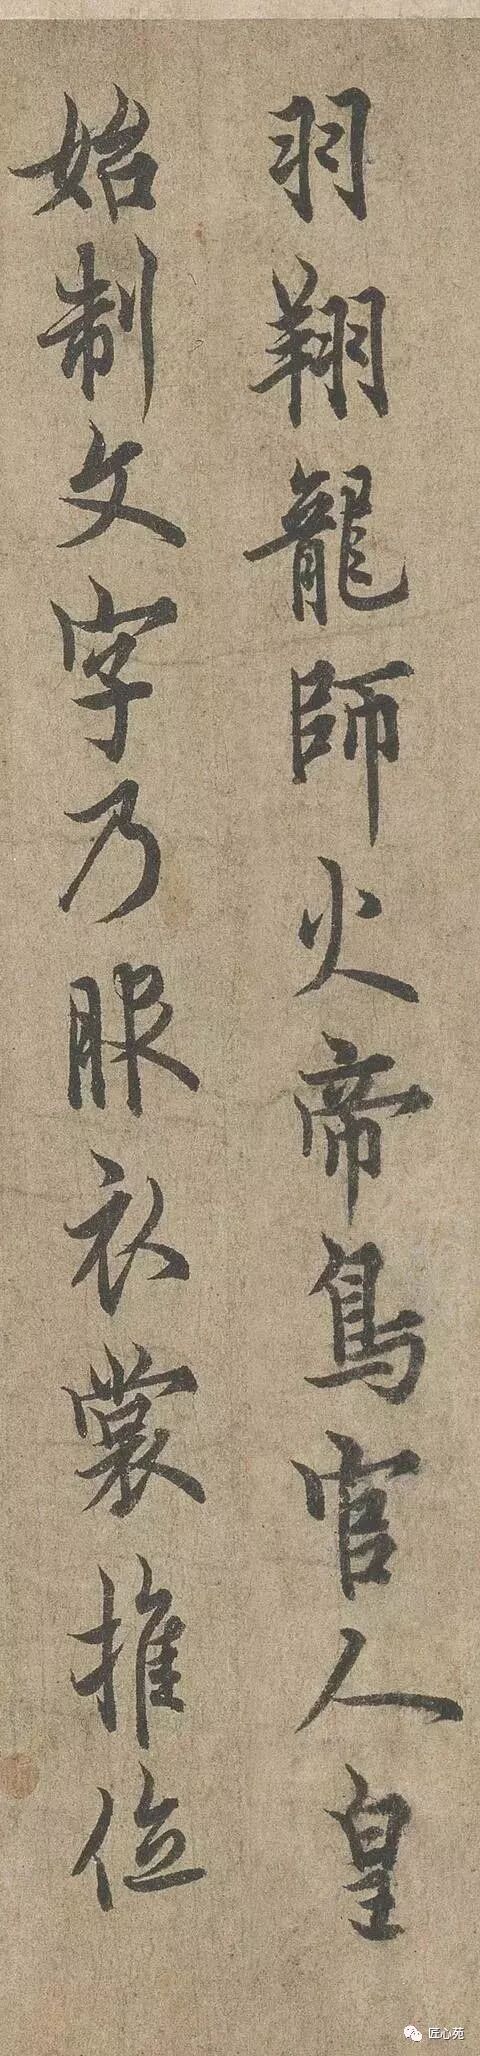 羽翔龍師火帝鳥官人皇
始制文字乃服衣裳推位
匠心苑